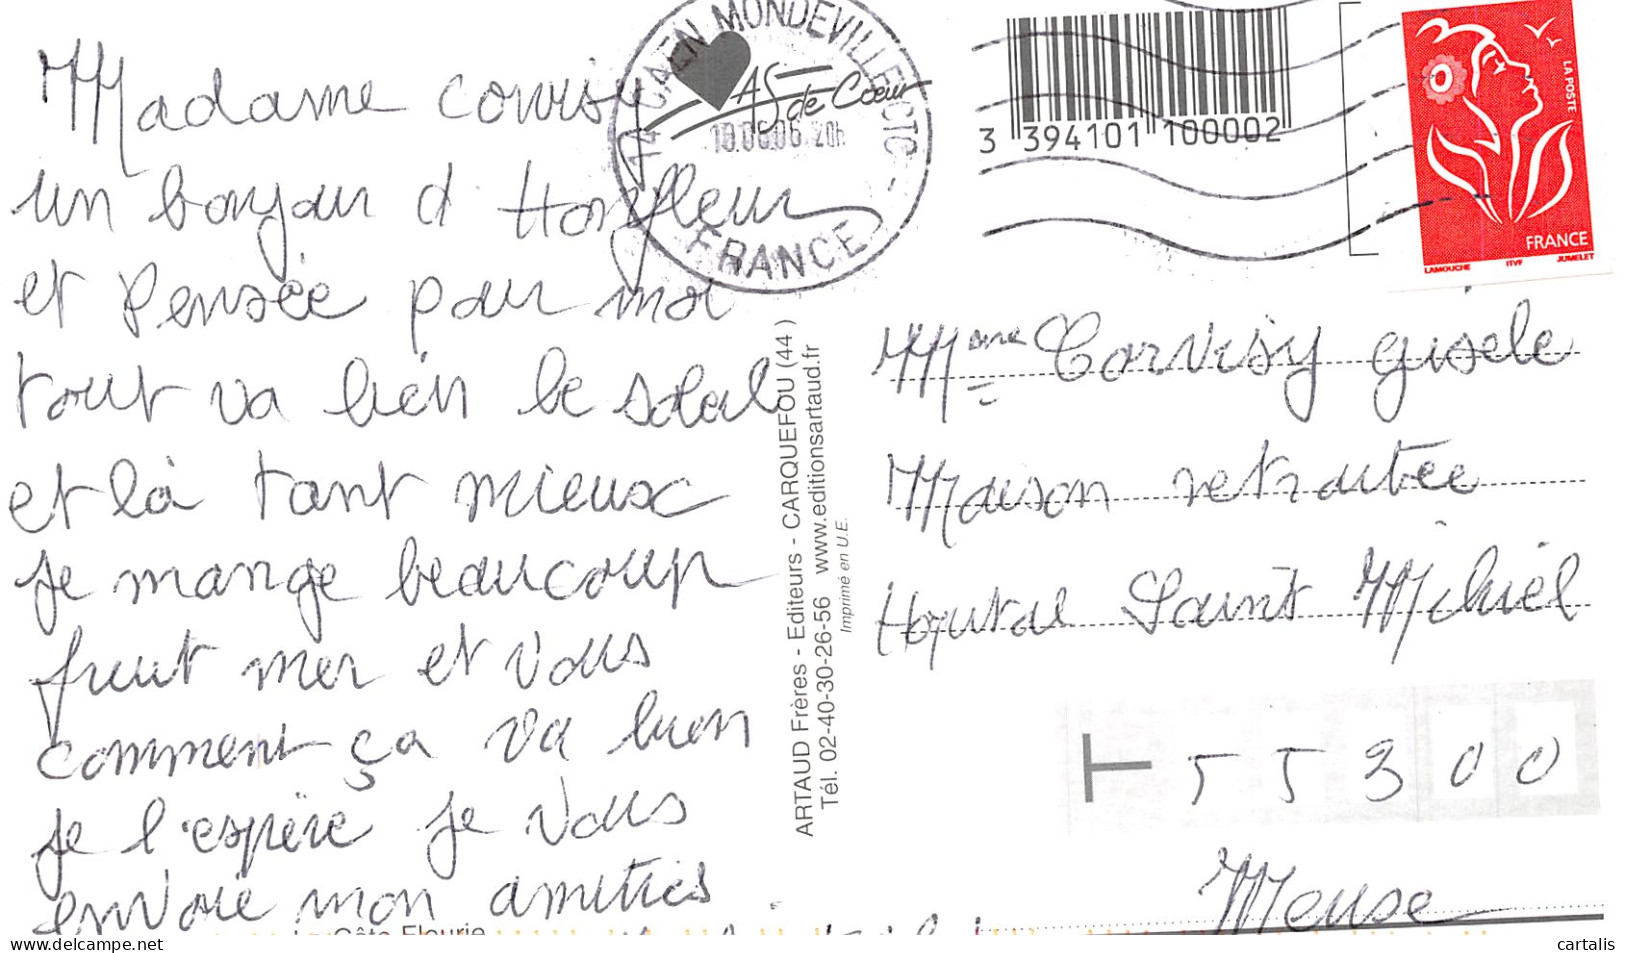 Madame corvisy
un bonjour d Honfleur
et Pensée pour moi
tout va bien le soleil
et là tant mieux
je mange beaucoup
fruit mer et vous
comment ça va bien
je l'espère je vous
envoie mon amitiés
Côte Fleurie
14 CAEN MONDEVILLE CTC -
10.06.06 20h
FRANCE
AS de Cœur
3 394101 100002
LA POSTE
FRANCE
LAMOUCHE ITVF JUMELET
ARTAUD Frères - Editeurs - CARQUEFOU (44)
Tél. 02-40-30-26-56 www.editionsartaud.fr
Imprimé en U.E.
Mme Corvisy gisèle
Maison retraitée
Hopital Saint Mihiel
55300
Meuse
www.delcampe.net
cartalis